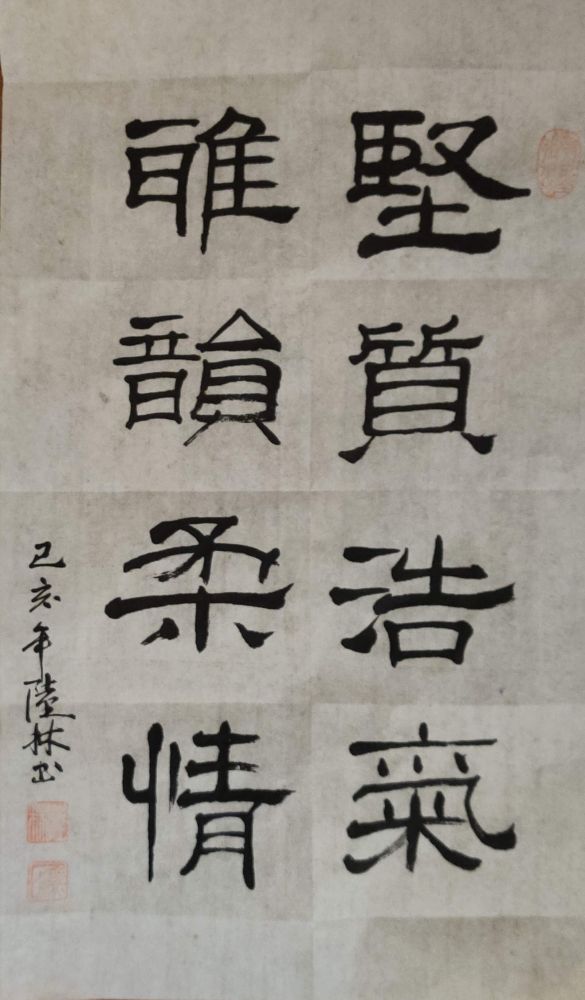 堅質浩氣
雅韻柔情
己亥年陸林书